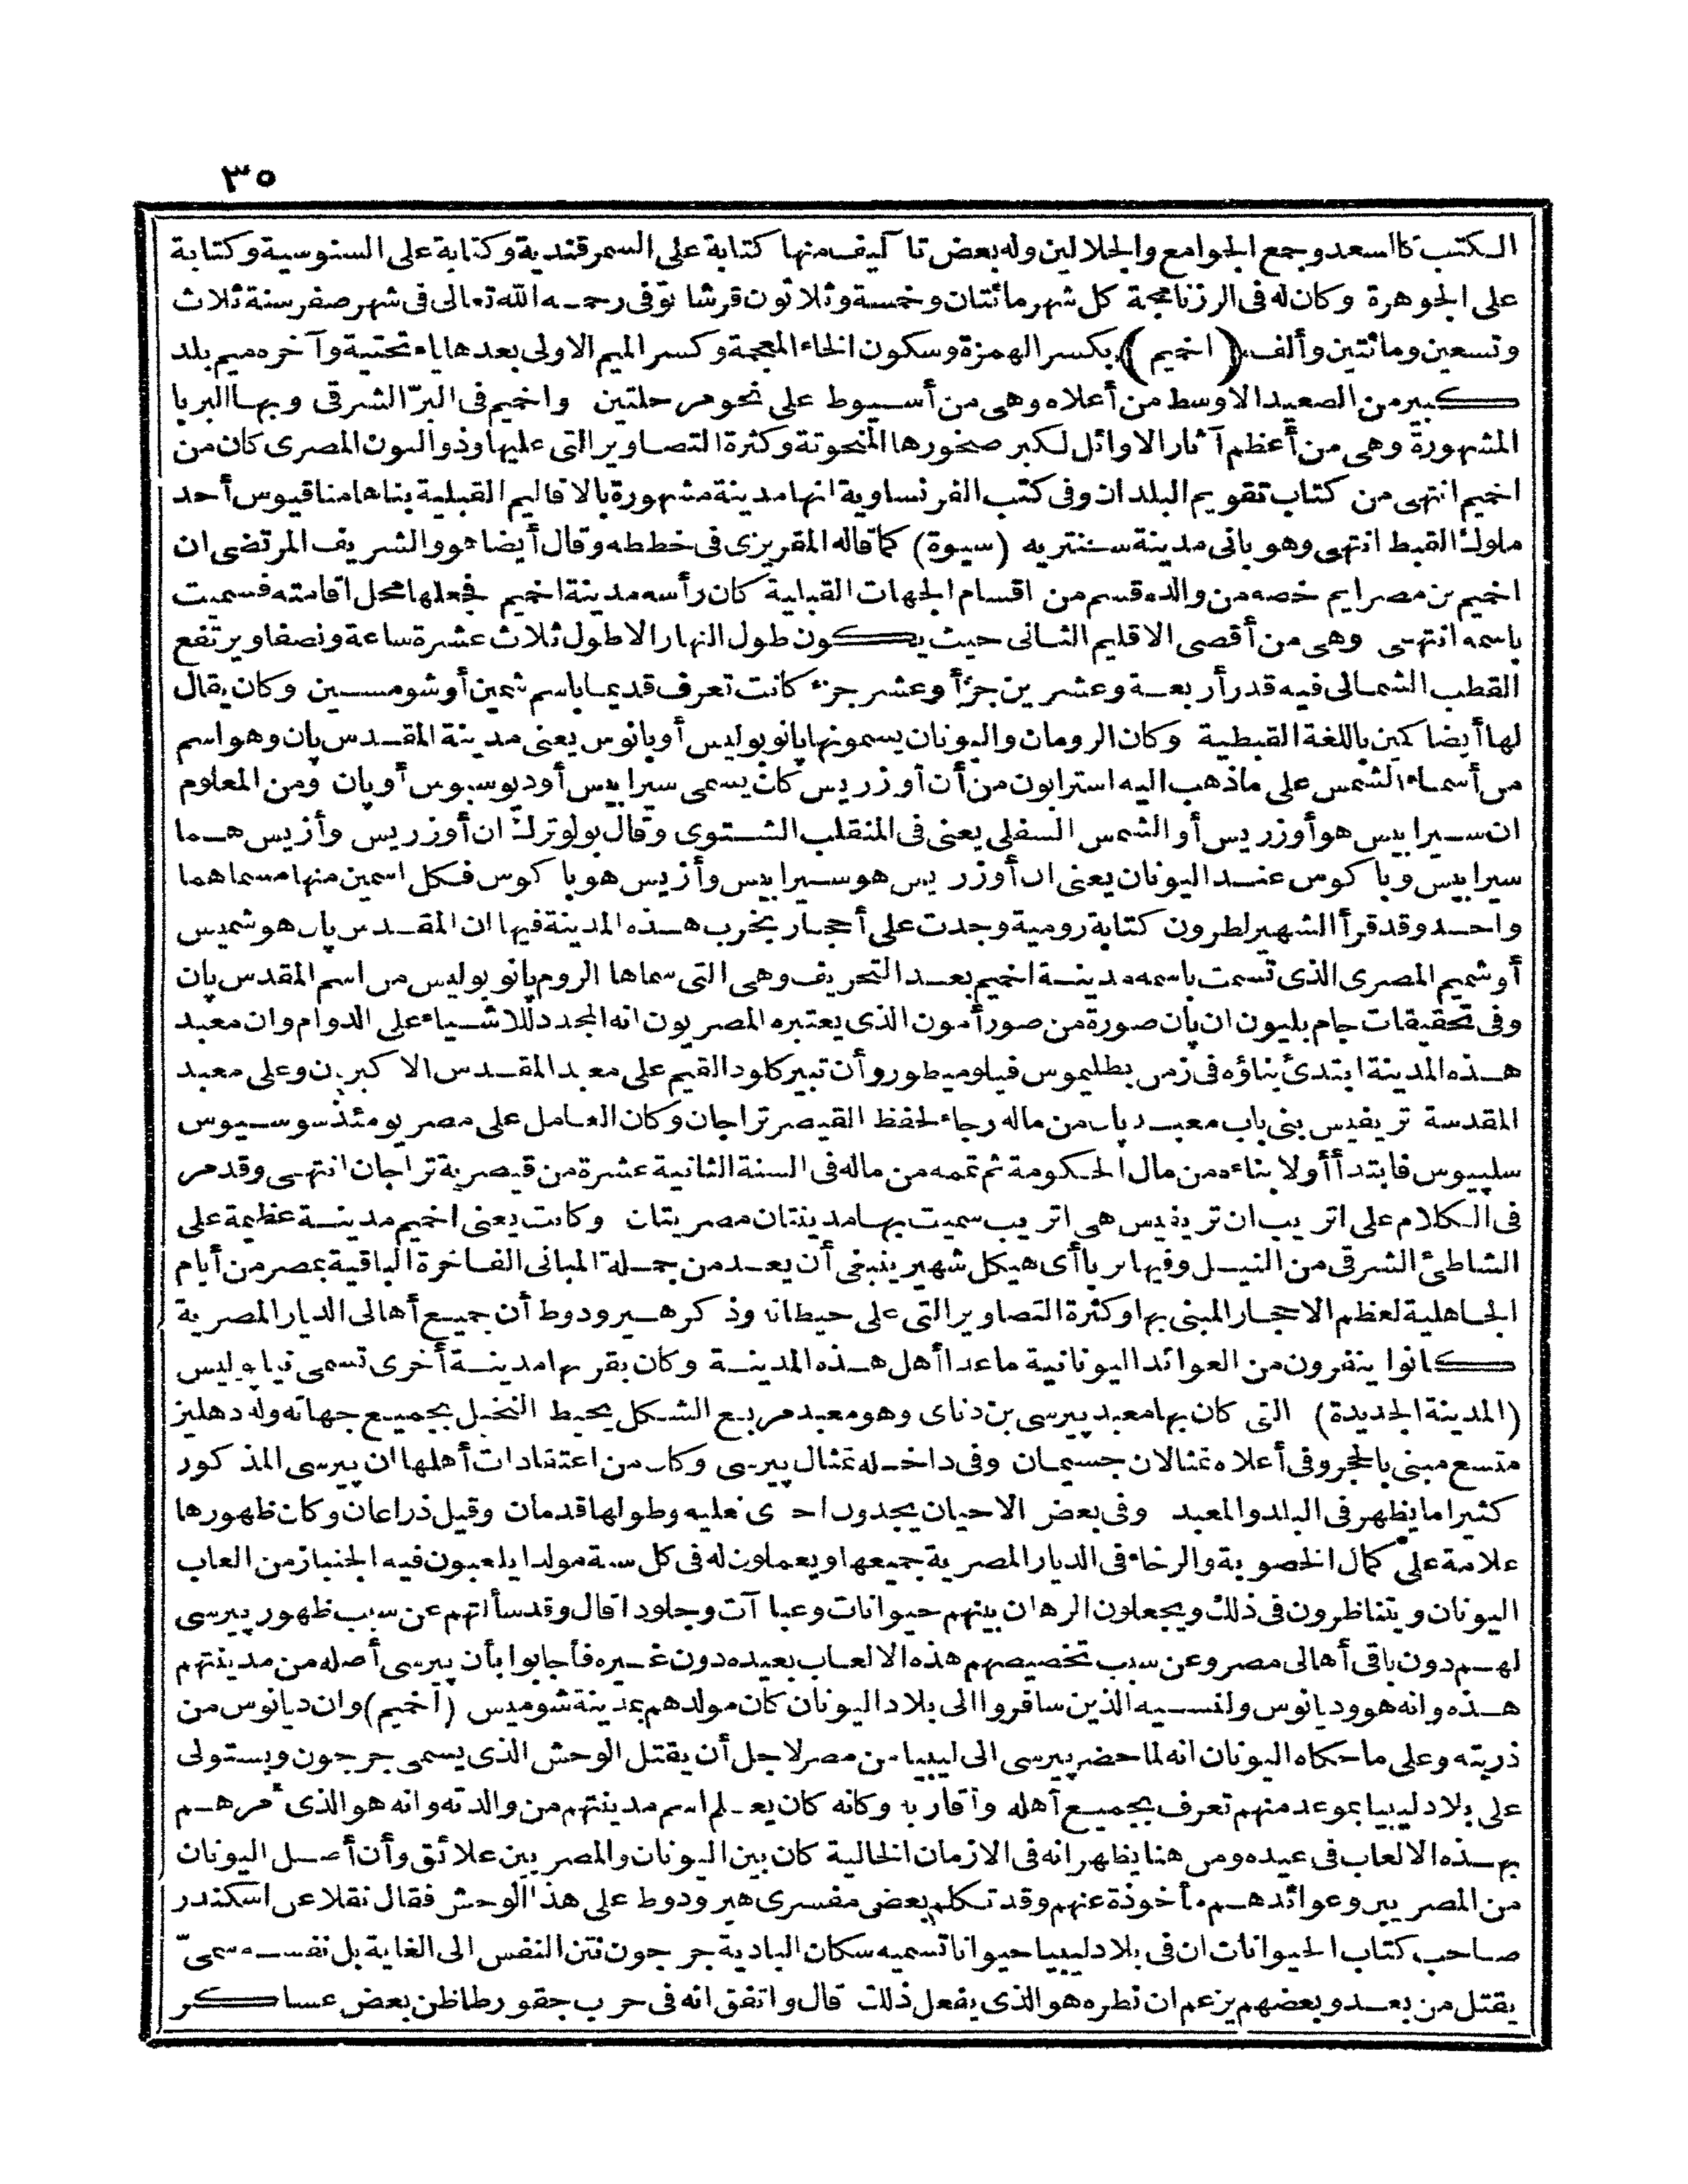 ٣٥
الكتب كالسعد وجمع الجوامع والجلالين وله بعض تآليف منها كتابة على السمرقندية وكتابة على السنوسية وكتابة
على الجوهرة وكان له فى الرزنامجة كل شهر مائتان وخمسة وثلاثون قرشا توفى رحمه الله تعالى فى شهر صفر سنة ثلاث
وتسعين ومائتين وألف (اخميم) بكسر الهمزة وسكون الخاء المعجمة وكسر الميم الاولى بعدها ياء تحتية وآخره ميم بلد
كبير من الصعيد الاوسط من أعلاه وهى من أسيوط على نحو مرحلتين واخميم فى البرّ الشرقى وبها البربا
المشهورة وهى من أعظم آثار الاوائل لكبر صخورها المنحوتة وكثرة التصاوير التى عليها وذو النون المصرى كان من
اخميم انتهى من كتاب تقويم البلدان وفى كتب الفرنساوية انها مدينة مشهورة بالاقاليم القبلية بناها مناقيوس أحد
ملوك القبط انتهى وهو بانى مدينة سنتريه (سيوة) كما قاله المقريزى فى خططه وقال أيضا هو والشريف المرتضى ان
اخميم بن مصرايم خصه من والده قسم من اقسام الجهات القبلية كان رأسه مدينة اخميم فجعلها محل اقامته فسميت
باسمه انتهى وهى من أقصى الاقليم الثانى حيث يكون طول النهار الاطول ثلاث عشرة ساعة ونصفا ويرتفع
القطب الشمالى فيه قدر أربعة وعشرين جزأ وعشر جزء كانت تعرف قديما باسم شمين أو شومسين وكان يقال
لها أيضا كمين باللغة القبطية وكان الرومان واليونان يسمونها پانوبوليس أو پانوس يعنى مدينة المقدس پان وهو اسم
من أسماء الشمس على ما ذهب اليه استرابون من أن أوزريس كان يسمى سيرابيس أو ديوسيوس أو پان ومن المعلوم
ان سيرابيس هو أوزريس أو الشمس السفلى يعنى فى المنقلب الشتوى وقال بولوترك ان أوزريس وأزيس هما
سيرابيس وباكوس عند اليونان يعنى ان أوزريس هو سيرابيس وأزيس هو باكوس فكل اسمين منها مسماهما
واحد وقد قرأ الشهير لطرون كتابة رومية وجدت على أحجار بخرب هذه المدينة فيها ان المقدس پان هو شميس
أو شميم المصرى الذى تسمت باسمه مدينة اخميم بعد التحريف وهى التى سماها الروم پانوبوليس من اسم المقدس پان
وفى تحقيقات جام بليون ان پان صورة من صور أمون الذى يعتبره المصريون انه المجدد للاشياء على الدوام وان معبد
هذه المدينة ابتدئ بناؤه فى زمن بطليموس فيلوميطور وأن تبير كلود القيم على معبد المقدس الاكبرين وعلى معبد
المقدسة تريفيس بنى باب معبد پان من ماله رجاء لحفظ القيصر تراجان وكان العامل على مصر يومئذ سوسيوس
سلپيوس فابتدأ أولا بناءه من مال الحكومة ثم تممه من ماله فى السنة الثانية عشرة من قيصرية تراجان انتهى وقد مر
فى الكلام على اتريب ان تريفيس هى اتريب سميت بها مدينتان مصريتان وكانت يعنى اخميم مدينة عظيمة على
الشاطئ الشرقى من النيل وفيها بربا أى هيكل شهير ينبغى أن يعد من جملة المبانى الفاخرة الباقية بمصر من أيام
الجاهلية لعظم الاحجار المبنى بها وكثرة التصاوير التى على حيطانه وذكر هيرودوط أن جميع أهالى الديار المصرية
كانوا ينفرون من العوائد اليونانية ما عدا أهل هذه المدينة وكان بقربها مدينة أخرى تسمى نياپوليس
(المدينة الجديدة) التى كان بها معبد پيرسى بن دناى وهو معبد مربع الشكل يحيط النخيل بجميع جهاته وله دهليز
متسع مبنى بالحجر وفى أعلاه تمثالان جسيمان وفى داخله تمثال پيرسى وكان من اعتقادات أهلها ان پيرسى المذكور
كثيرا ما يظهر فى البلد والمعبد وفى بعض الاحيان يجدون احدى نعليه وطولها قدمان وقيل ذراعان وكان ظهورها
علامة على كمال الخصوبة والرخاء فى الديار المصرية جميعها ويعملون له فى كل سنة مولدا يلعبون فيه الجنباز من العاب
اليونان ويتناظرون فى ذلك ويجعلون الرهان بينهم حيوانات وعباآت وجلودا قال وقد سألتهم عن سبب ظهور پيرسى
لهم دون باقى أهالى مصر وعن سبب تخصيصهم هذه الالعاب بعيده دون غيره فأجابوا بأن پيرسى أصله من مدينتهم
هذه وانه هو وديانوس ولنسيه الذين سافروا الى بلاد اليونان كان مولدهم بمدينة شوميس (اخميم) وان ديانوس من
ذريته وعلى ما حكاه اليونان انه لما حضر پيرسى الى ليبيا من مصر لاجل أن يقتل الوحش الذى يسمى جرجون ويستولى
على بلاد ليبيا بموعد منهم تعرف بجميع أهله وأقاربه وكانه كان يعلم اسم مدينتهم من والدته وانه هو الذى أمرهم
بهذه الالعاب فى عيده ومن هنا يظهر انه فى الازمان الخالية كان بين اليونان والمصريين علائق وأن أصل اليونان
من المصريين وعوائدهم مأخوذة عنهم وقد تكلم بعض مفسرى هيرودوط على هذا الوحش فقال نقلا عن اسكندر
صاحب كتاب الحيوانات ان فى بلاد ليبيا حيوانا تسميه سكان البادية جرجون نتن النفس الى الغاية بل نفسه سمىّ
يقتل من بعد وبعضهم يزعم ان نظره هو الذى يفعل ذلك قال واتفق انه فى حرب جقورطا ظن بعض عساكر